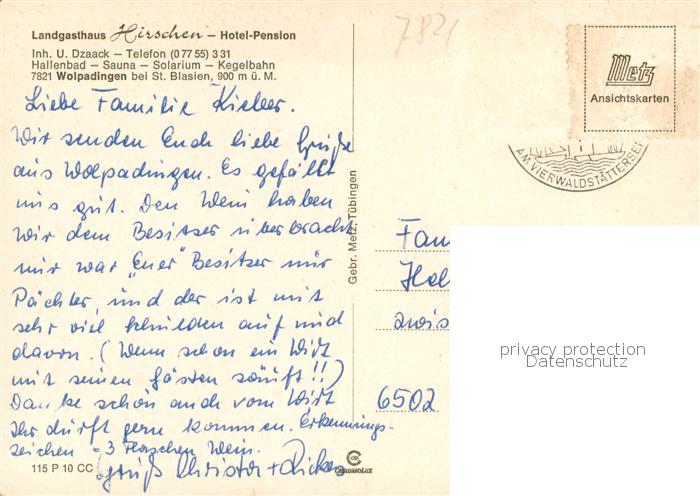 Landgasthaus Hirschen – Hotel-Pension
Inh. U. Dzaack – Telefon (0 77 55) 3 31
Hallenbad – Sauna – Solarium – Kegelbahn
7821 Wolpadingen bei St. Blasien, 900 m ü. M.
7821
Metz
Ansichtskarten
AM VIERWALDSTÄTTERSEE
Liebe Familie
Wir senden Euch liebe Grüße
aus Wolpadingen. Es gefällt
uns gut. Den Wein haben
wir dem Besitzer überbracht
nur war "Euer" Besitzer nur
Pächter, und der ist mit
sehr viel Schulden auf und
davon. (Wenn schon ein Wirt
mit seinen Gästen säuft!!)
Danke schön auch vom Wirt
Ihr dürft gern kommen. Erkennungs-
zeichen = 3 Flaschen Wein.
Gruß Christa +
115 P 10 CC
Gebr. Metz, Tübingen
Fam
6502
CHROMOLUX
privacy protection
Datenschutz